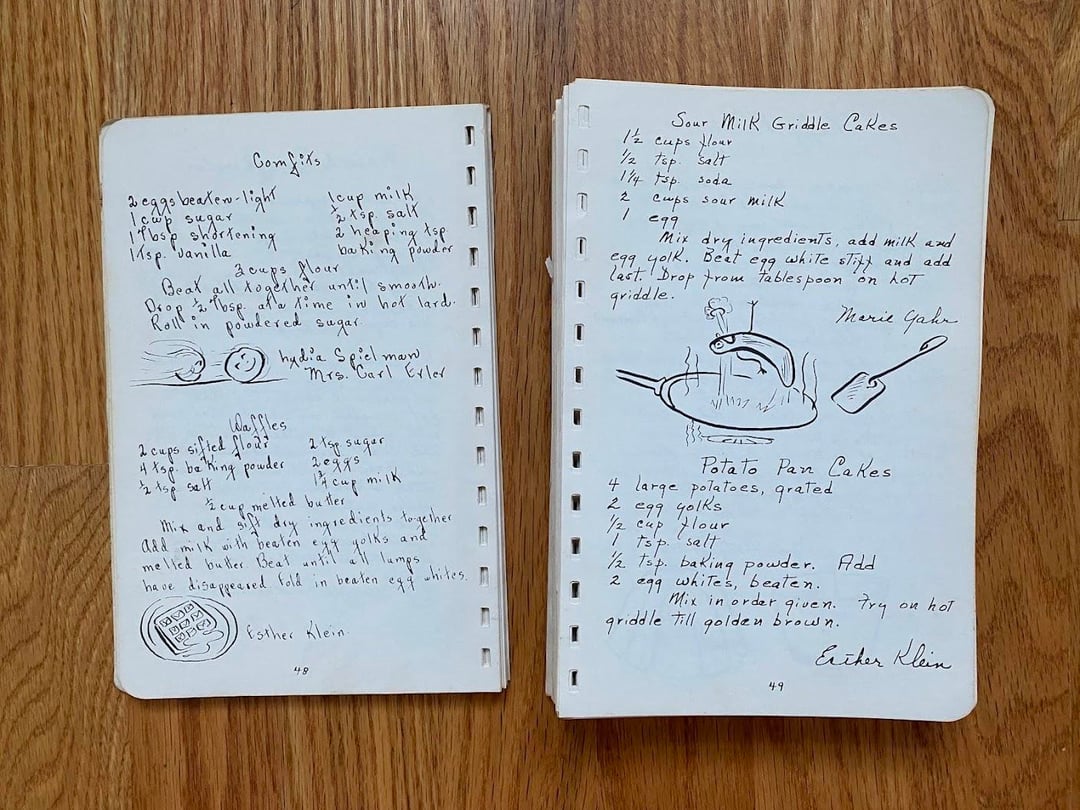 Comfits
2 eggs beaten-light
1 cup sugar
1 Tbsp shortening
1 Tsp. vanilla
1 cup milk
½ tsp. salt
2 heaping tsp.
baking powder
3 cups flour
Beat all together until smooth.
Drop ½ Tbsp. at a time in hot lard.
Roll in powdered sugar.
Lydia Spielman
Mrs. Carl Erler
Waffles
2 cups sifted flour
4 tsp. baking powder
½ tsp salt
2 tsp sugar
2 eggs
1¾ cup milk
½ cup melted butter
Mix and sift dry ingredients together
Add milk with beaten egg yolks and
melted butter Beat until all lumps
have disappeared Fold in beaten egg whites.
Esther Klein.
48
Sour Milk Griddle Cakes
1½ cups flour
½ tsp. salt
1¼ tsp. soda
2 cups sour milk
1 egg
Mix dry ingredients, add milk and
egg yolk. Beat egg white stiff and add
last. Drop from tablespoon on hot
griddle.
Marie Yahr
Potato Pan Cakes
4 large potatoes, grated
2 egg yolks
½ cup flour
1 tsp. salt
½ tsp. baking powder. Add
2 egg whites, beaten.
Mix in order given. Fry on hot
griddle till golden brown.
Esther Klein
49